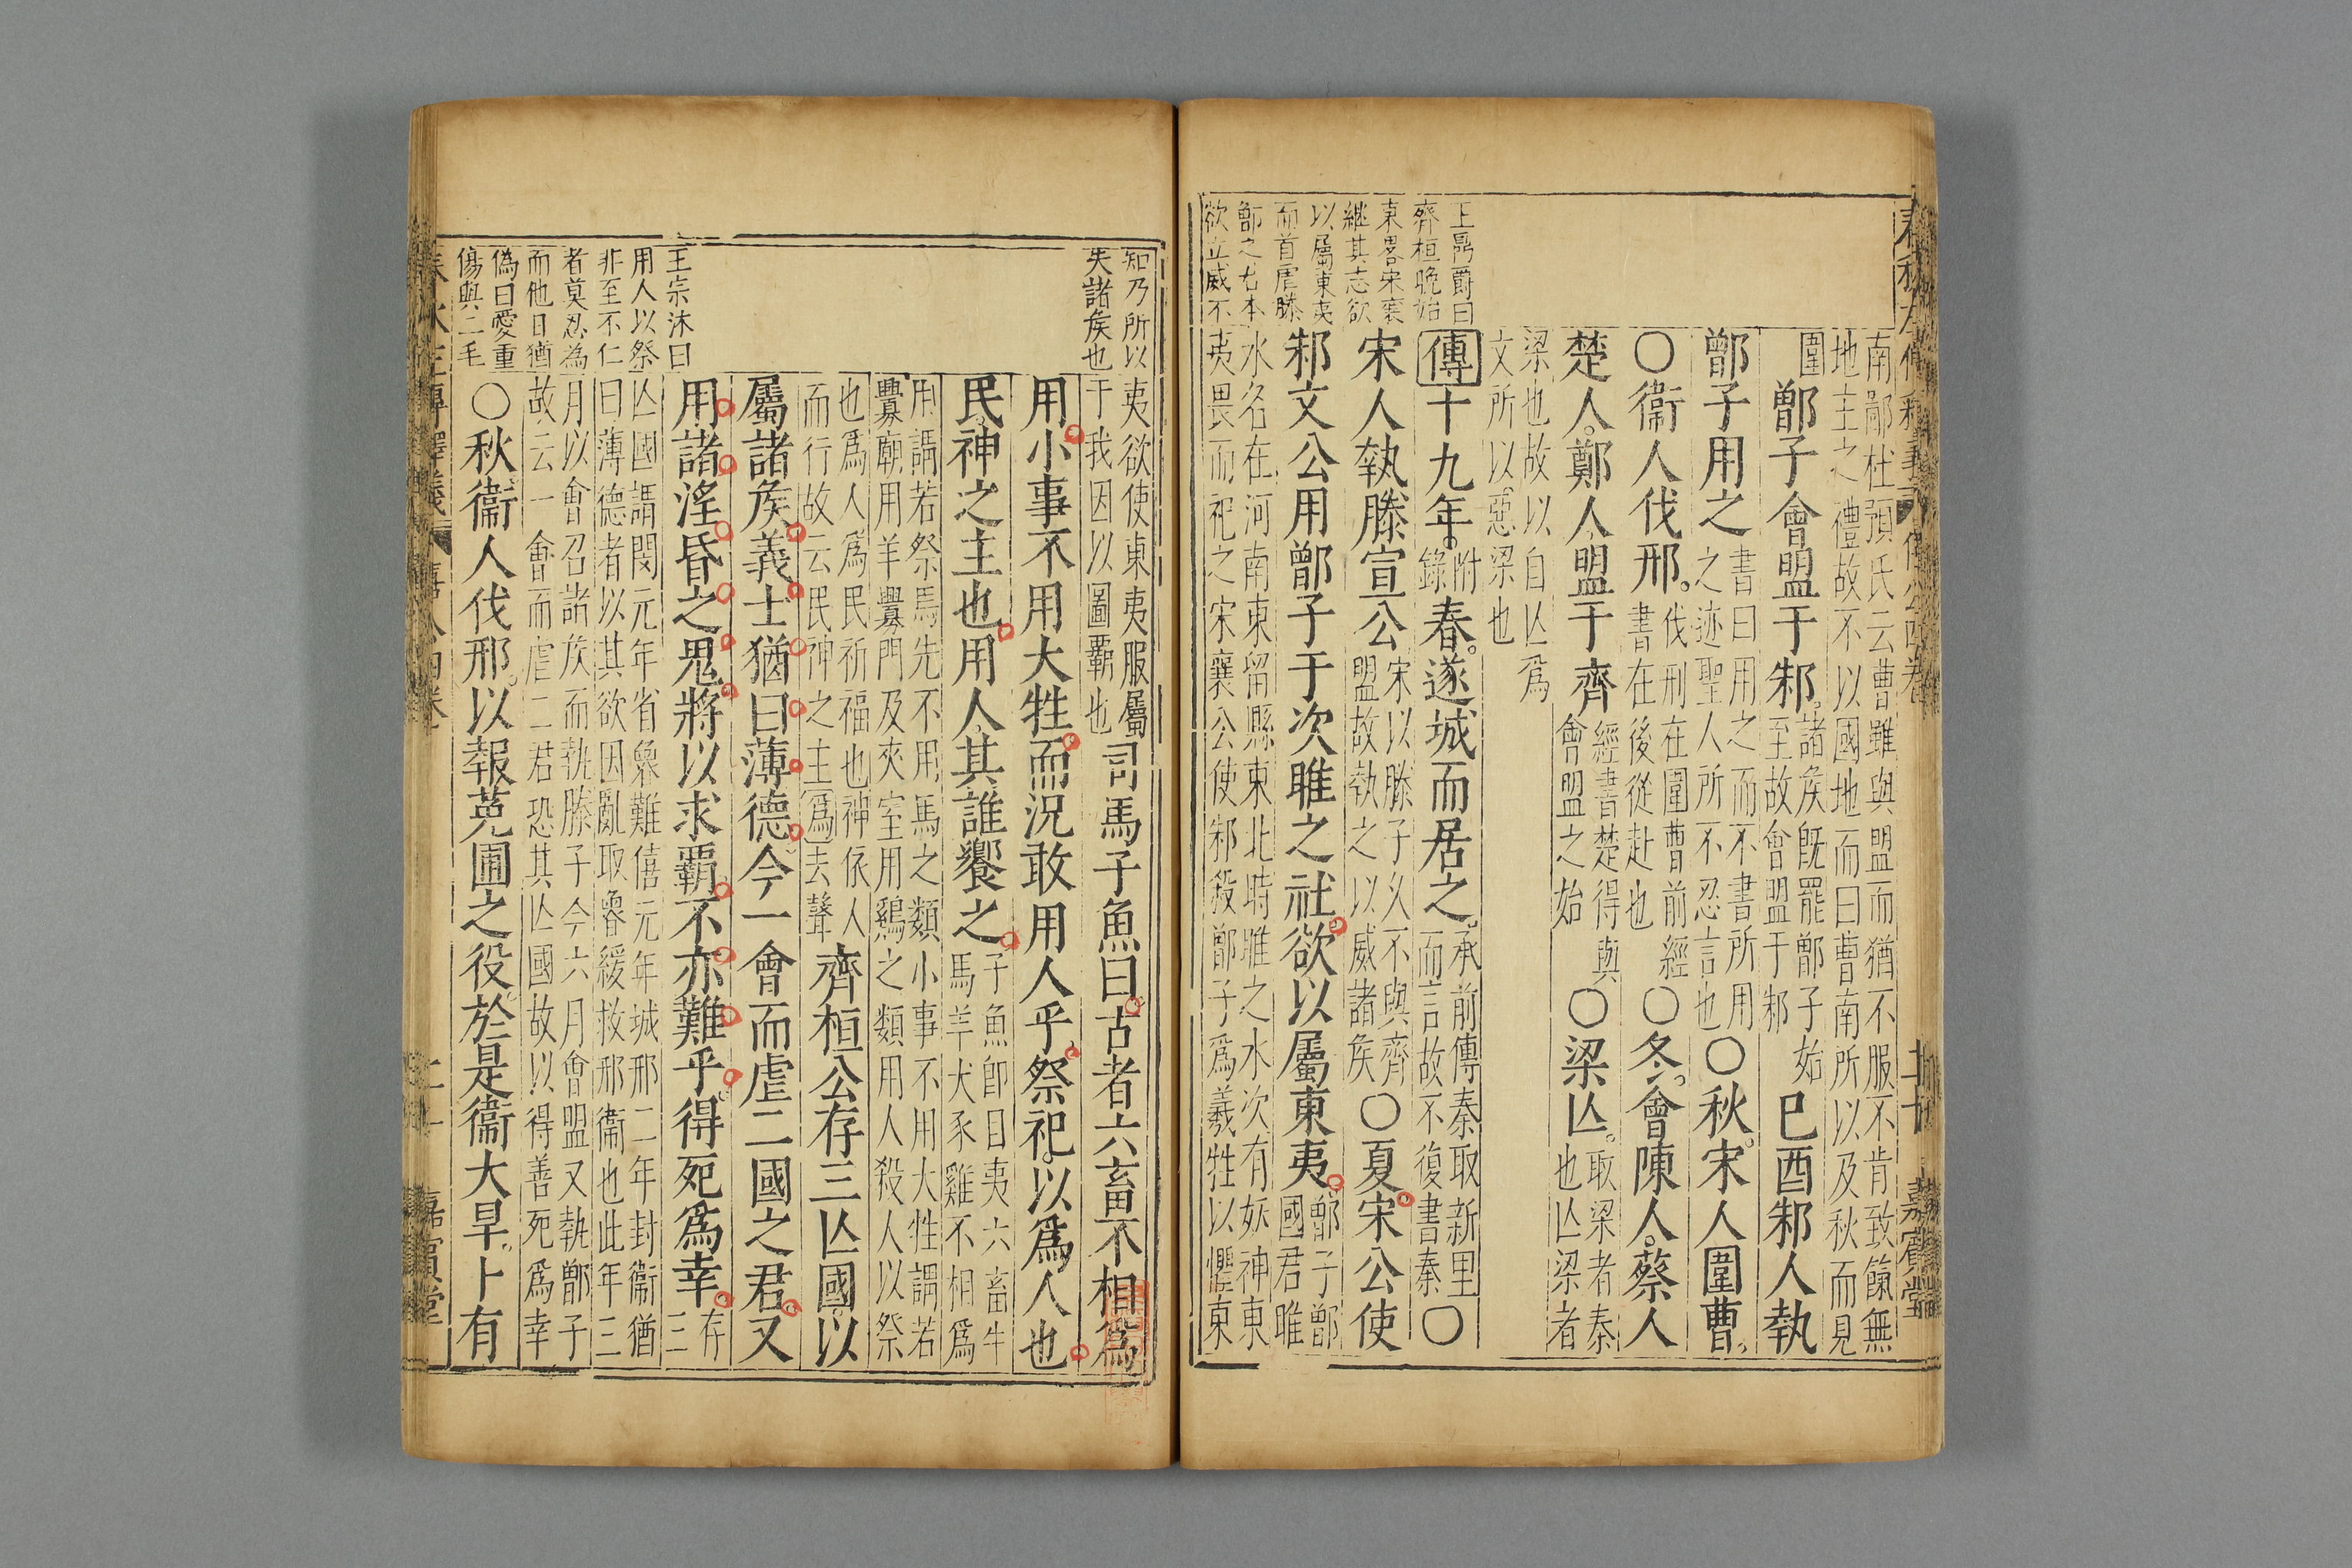 南鄙杜預氏云曹雖與盟而猶不服不肯致餼無
地主之禮故不以國地而曰曹南所以及秋而見
圍
鄫子會盟于邾
諸侯既罷鄫子始
至故會盟于邾
己酉邾人執
鄫子用之
書曰用之而不書所用
之迹聖人所不忍言也
○秋宋人圍曹
○衞人伐邢
伐刑在圍曹前經
書在後從赴也
○冬會陳人蔡人
楚人鄭人盟于齊
經書楚得與
會盟之始
○梁亾
取梁者秦
也亾梁者
梁也故以自亾爲
文所以惡梁也
王鼎爵曰
齊桓晚始
東畧宋襄
継其志欲
以屬東夷
而首虐滕
鄫之君本
欲立威不
傳十九年
附
錄
春遂城而居之
承前傳秦取新里
而言故不復書秦
○
宋人執滕宣公
宋以滕子久不與齊
盟故執之以威諸侯
○夏宋公使
邾文公用鄫子于次睢之社欲以屬東夷
鄫子鄫
國君睢
水名在河南東留縣東北時睢之水次有妖神東
夷畏而祀之宋襄公使邾殺鄫子爲羲牲以懼東
知乃所以
失諸侯也
夷欲使東夷服屬
于我因以圖霸也
司馬子魚曰古者六畜不相爲
用小事不用大牲而況敢用人乎祭祀以爲人也
民神之主也用人其誰饗之
子魚卽目夷六畜牛
馬羊犬豕雞不相爲
用謂若祭馬先不用馬之類小事不用大牲謂若
釁廟用羊釁門及夾室用鷄之類用人殺人以祭
也爲人爲民祈福也神依人
而行故云民神之主爲去聲
齊桓公存三亾國以
屬諸侯義士猶曰薄德今一會而虐二國之君又
用諸淫昏之鬼將以求霸不亦難乎得死爲幸
存
三
王宗沐曰
用人以祭
非至不仁
者莫忍為
而他日猶
偽曰愛重
傷與二毛
亾國謂閔元年省魯難僖元年城邢二年封衞猶
曰薄德者以其欲因亂取魯緩救邢衞也此年三
月以會召諸侯而執滕子今六月會盟又執鄫子
故云一會而虐二君恐其亾國故以得善死爲幸
○秋衞人伐邢以報菟圃之役於是衞大旱卜有
嘉賓堂